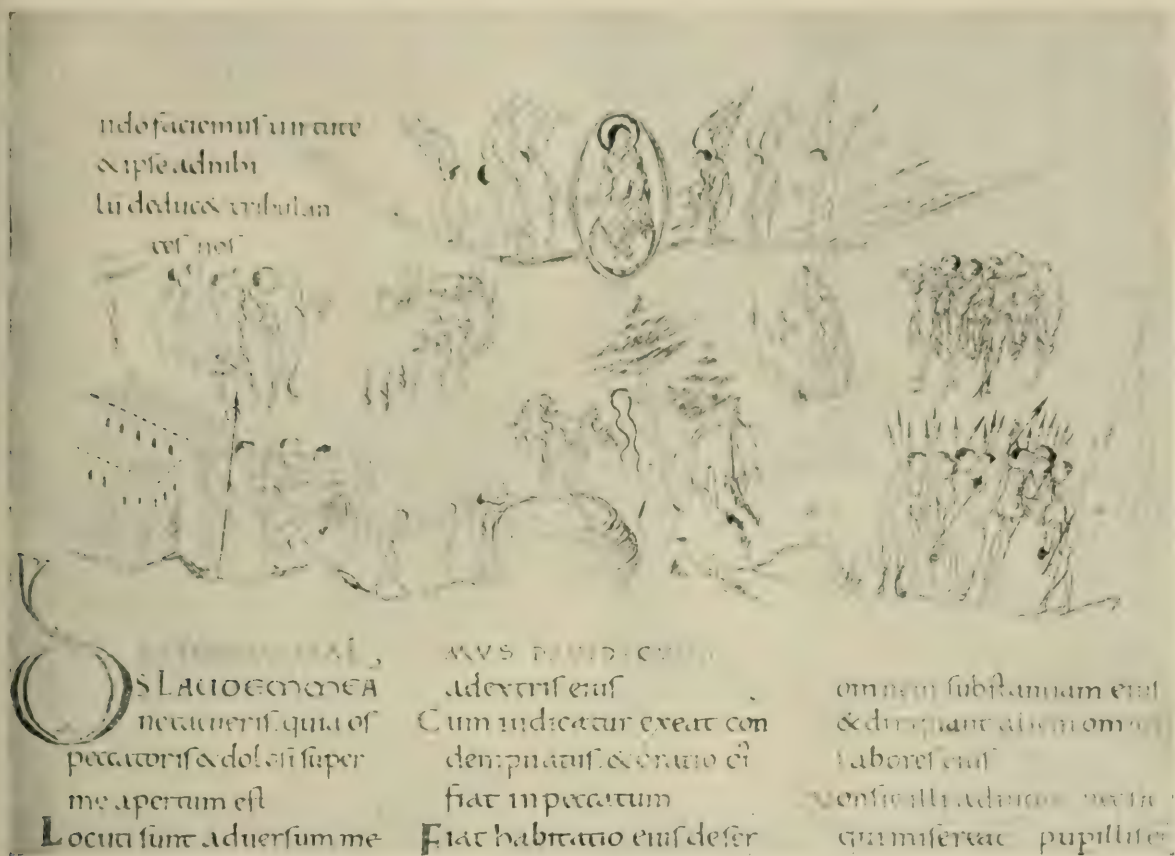 ndo faciemus uirtute
& ipse adnihi
lū deduc& tribulan
tes nos
MVS DAVID
DS LAUDEM MEA
ne tacueris. quia os
peccatoris & dolosi super
me apertum est
Locuti sunt aduersum me
adextris eius
Cum iudicatur exeat con
dempnatus. & oratio ei
fiat in peccatum
Fiat habitatio eius deser
omnem substantiam eius
& diripiant alieni
labores eius
Non sit illi adiutor
qui misereat pupillis